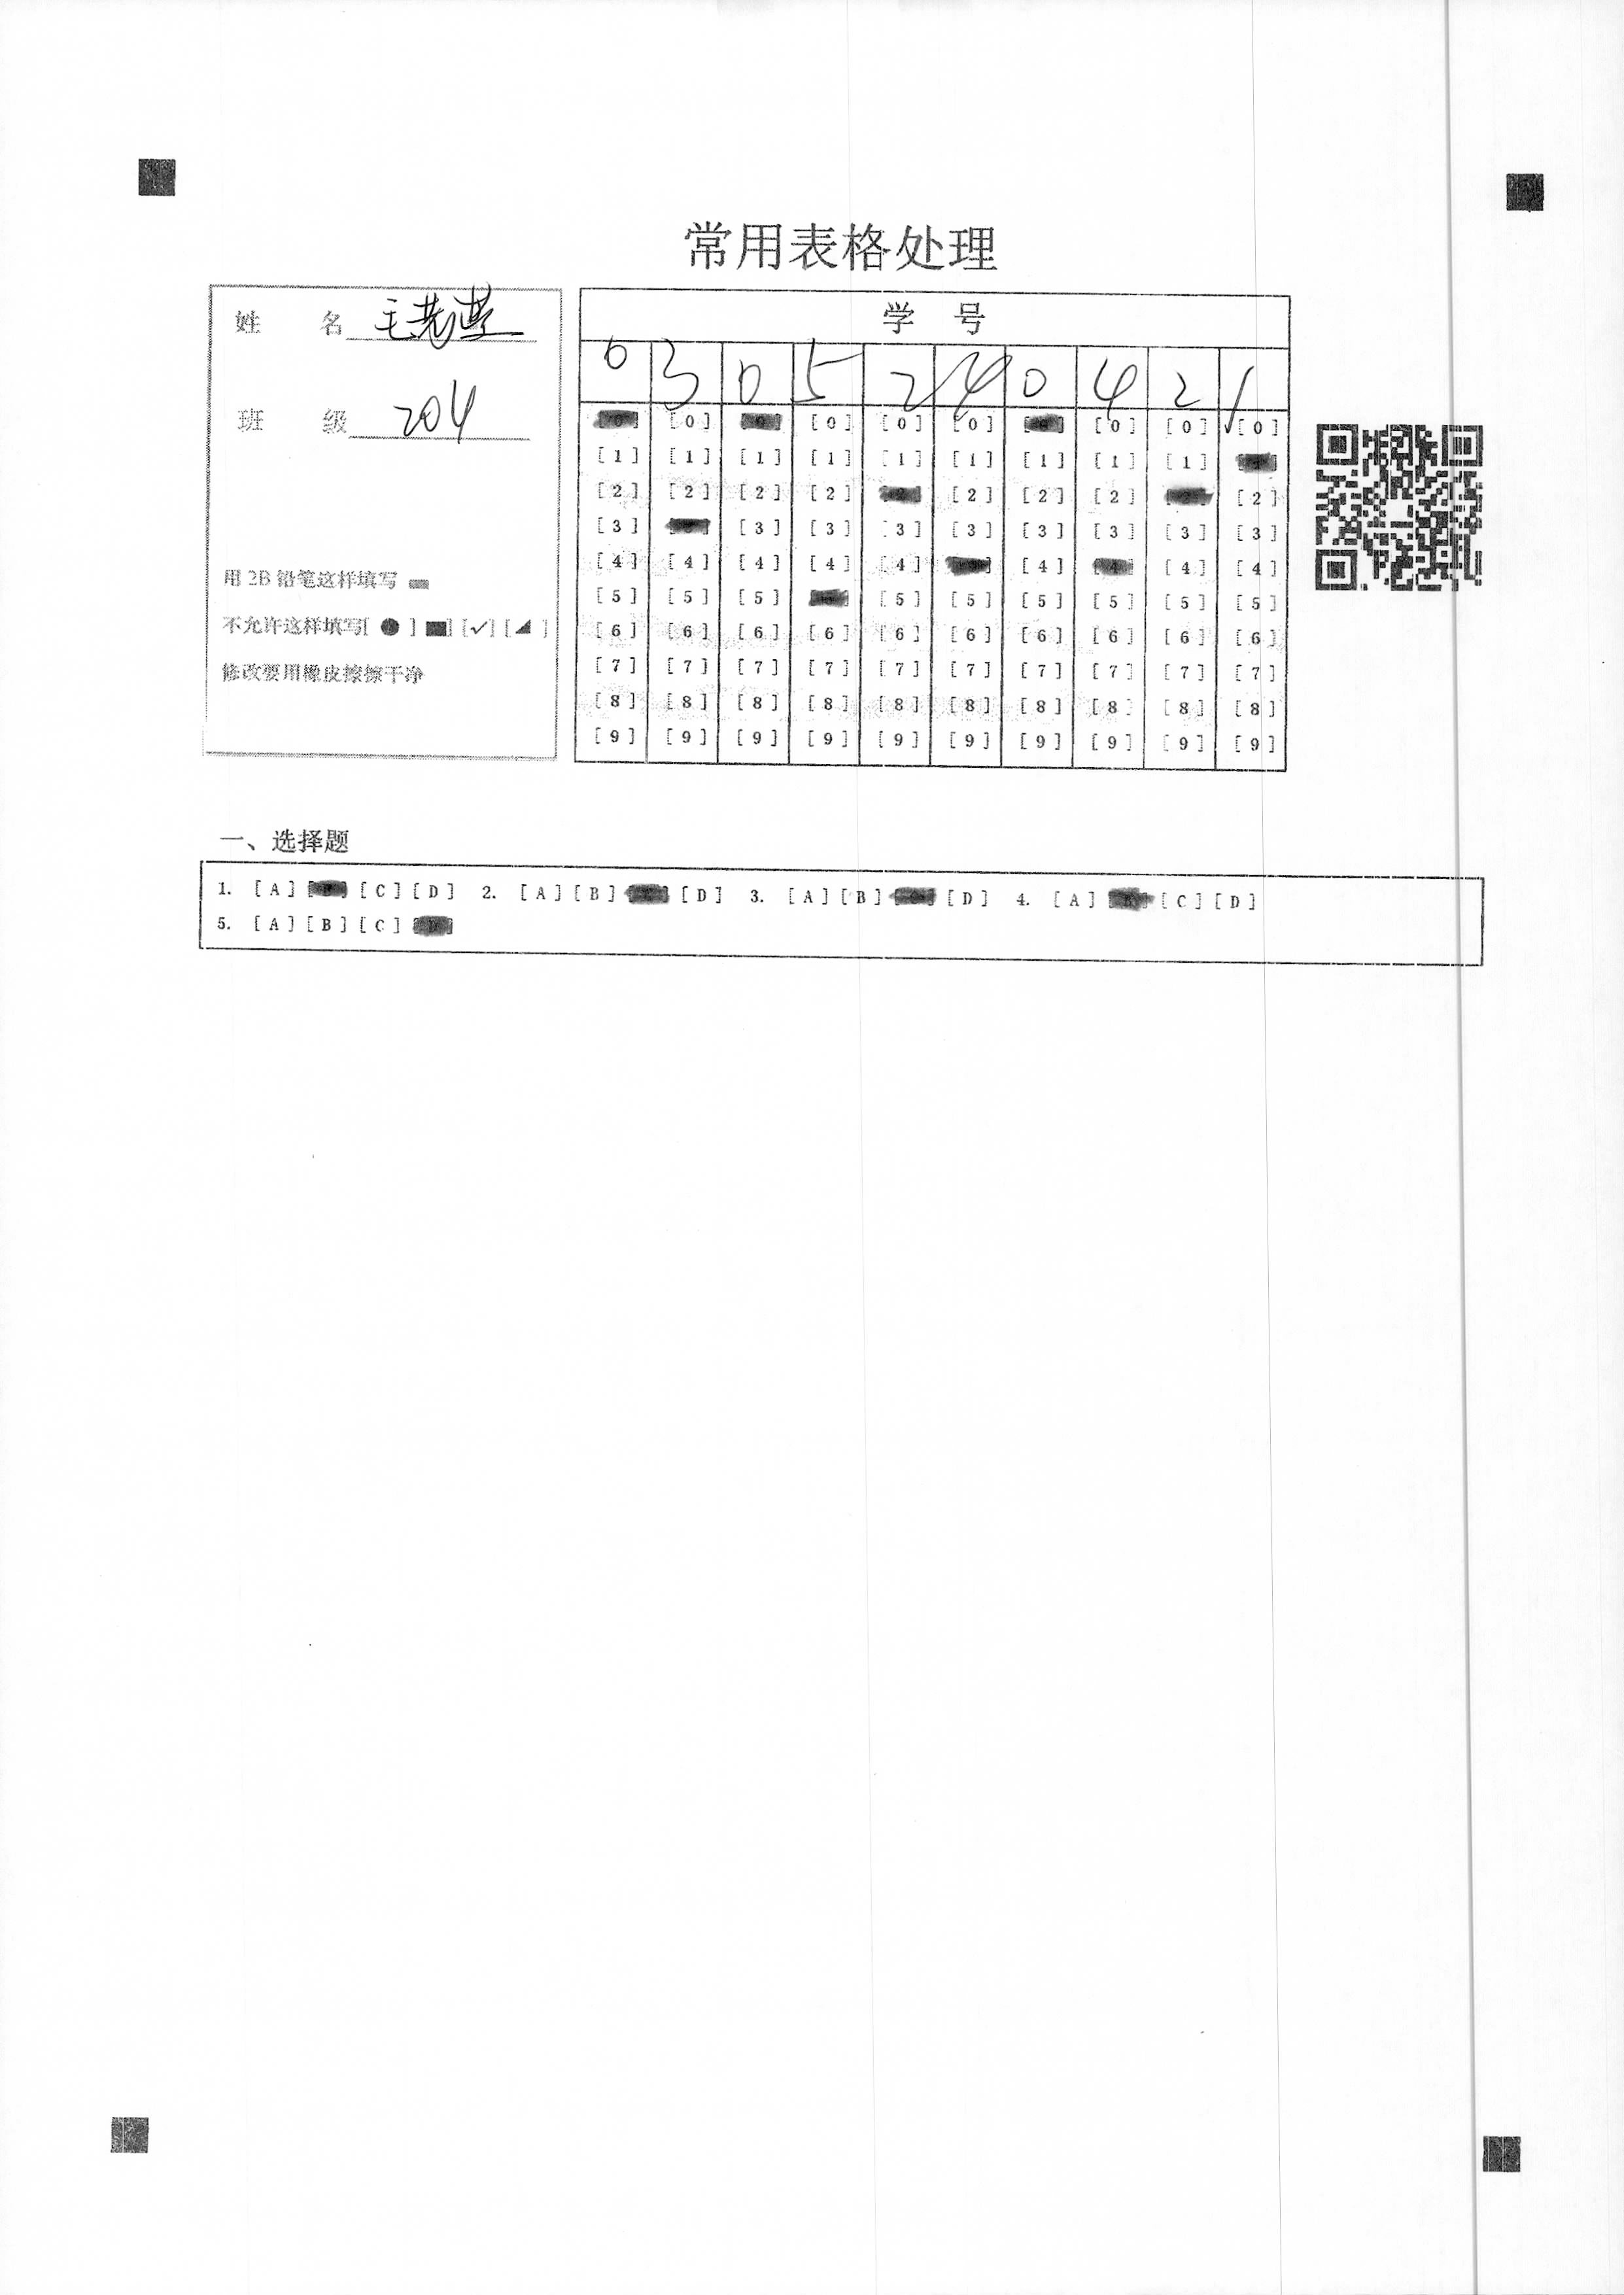 常用表格处理
姓 名
班 级 204
用2B铅笔这样填写
不允许这样填写[ ● ] ■] [✓] [◢ ]
修改要用橡皮擦擦干净
学 号
0 3 0 5 2 4 0 4 2 1
[0] [0] [0] [0] [0] [0] [0]
[1] [1] [1] [1] [1] [1] [1] [1] [1]
[2] [2] [2] [2] [2] [2] [2] [2]
[3] [3] [3] [3] [3] [3] [3] [3] [3]
[4] [4] [4] [4] [4] [4] [4] [4]
[5] [5] [5] [5] [5] [5] [5] [5] [5]
[6] [6] [6] [6] [6] [6] [6] [6] [6] [6]
[7] [7] [7] [7] [7] [7] [7] [7] [7] [7]
[8] [8] [8] [8] [8] [8] [8] [8] [8] [8]
[9] [9] [9] [9] [9] [9] [9] [9] [9] [9]
一、选择题
1. [A] [C] [D] 2. [A] [B] [D] 3. [A] [B] [D] 4. [A] [C] [D]
5. [A] [B] [C]